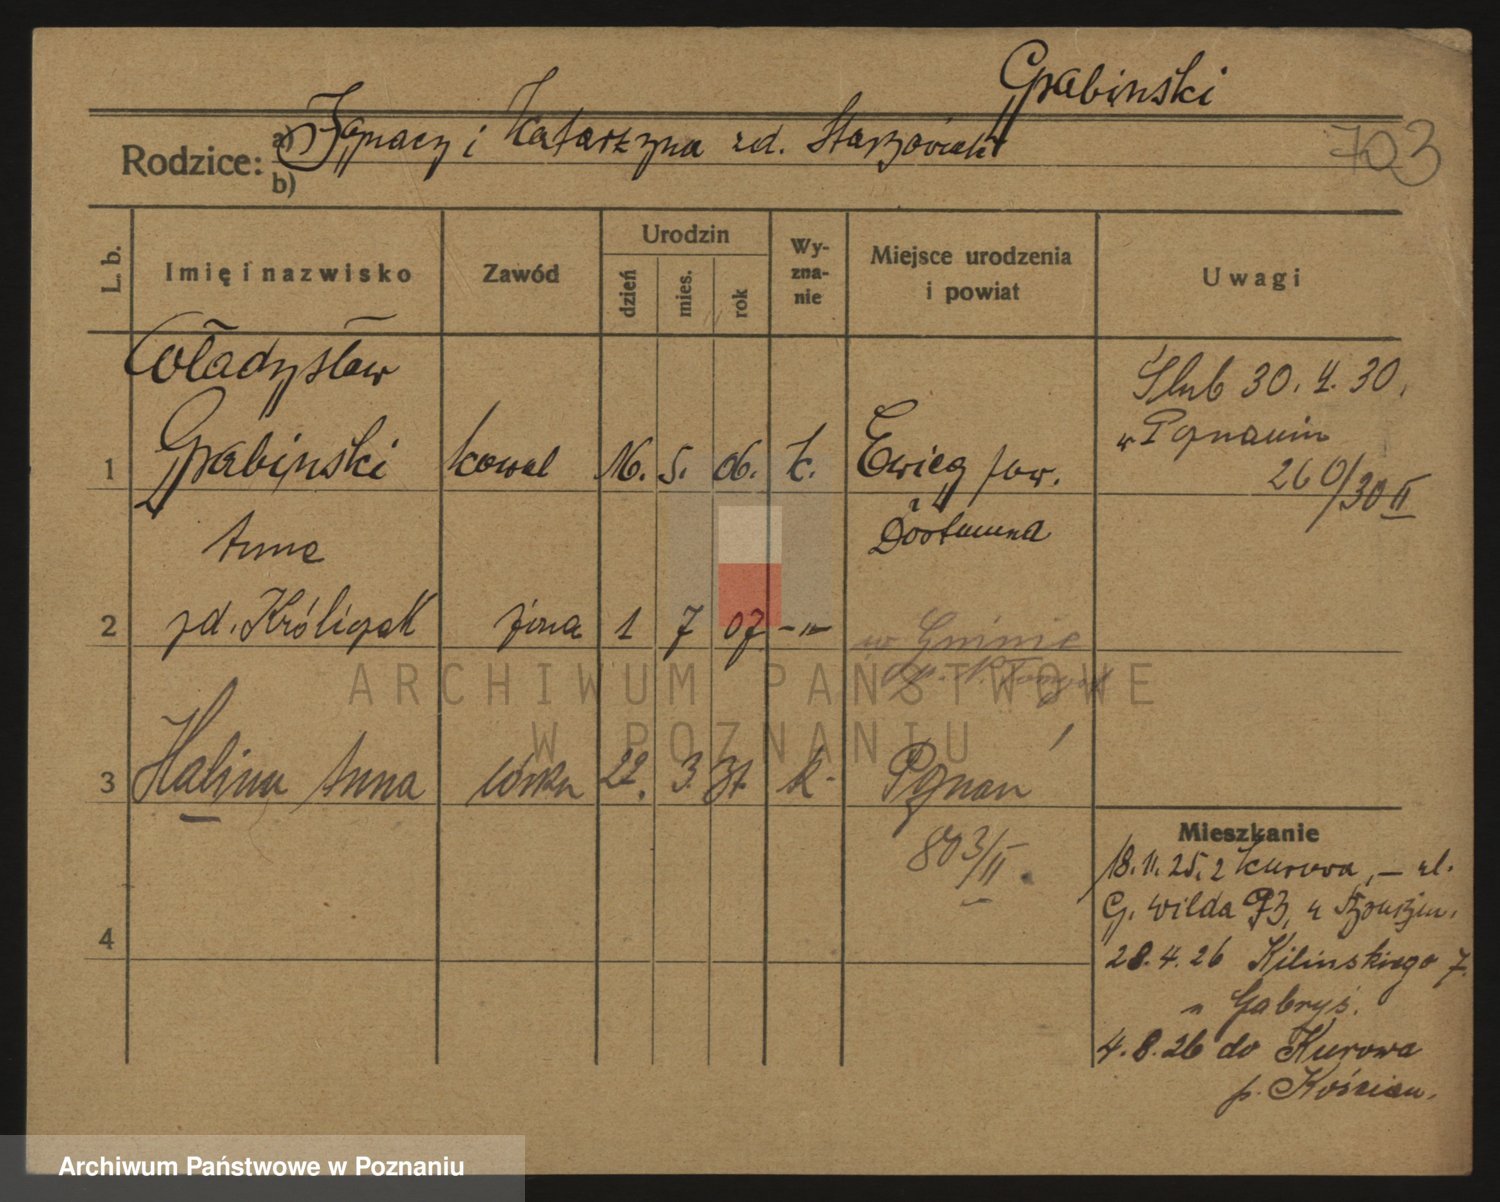 Grabinski
703
Rodzice: a) Ignacy i Katarzyna zd.
b)
L. b. Imię i nazwisko Zawód Urodzin dzień mies. rok Wyznanie Miejsce urodzenia i powiat Uwagi
Władysław
Ślub 30. 4. 30.
w Poznaniu
1 Grabinski kowal 16. 5. 06. k. Ewing pow.
260/30 II
Dortmund
Anna
2 zd. Króliczak żona 1 7 07 -"- w Gninie
3 Halina Anna córka 22. 3. 31. k. Poznań
803/II.
Mieszkanie
18.11.25. z Kurowa, – ul.
G. Wilda 93, u
4
28.4.26 Kilinskiego 7.
u Gabryś.
4.8.26 do Kurowa
p. Kościan.
ARCHIWUM PAŃSTWOWE
W POZNANIU
Archiwum Państwowe w Poznaniu